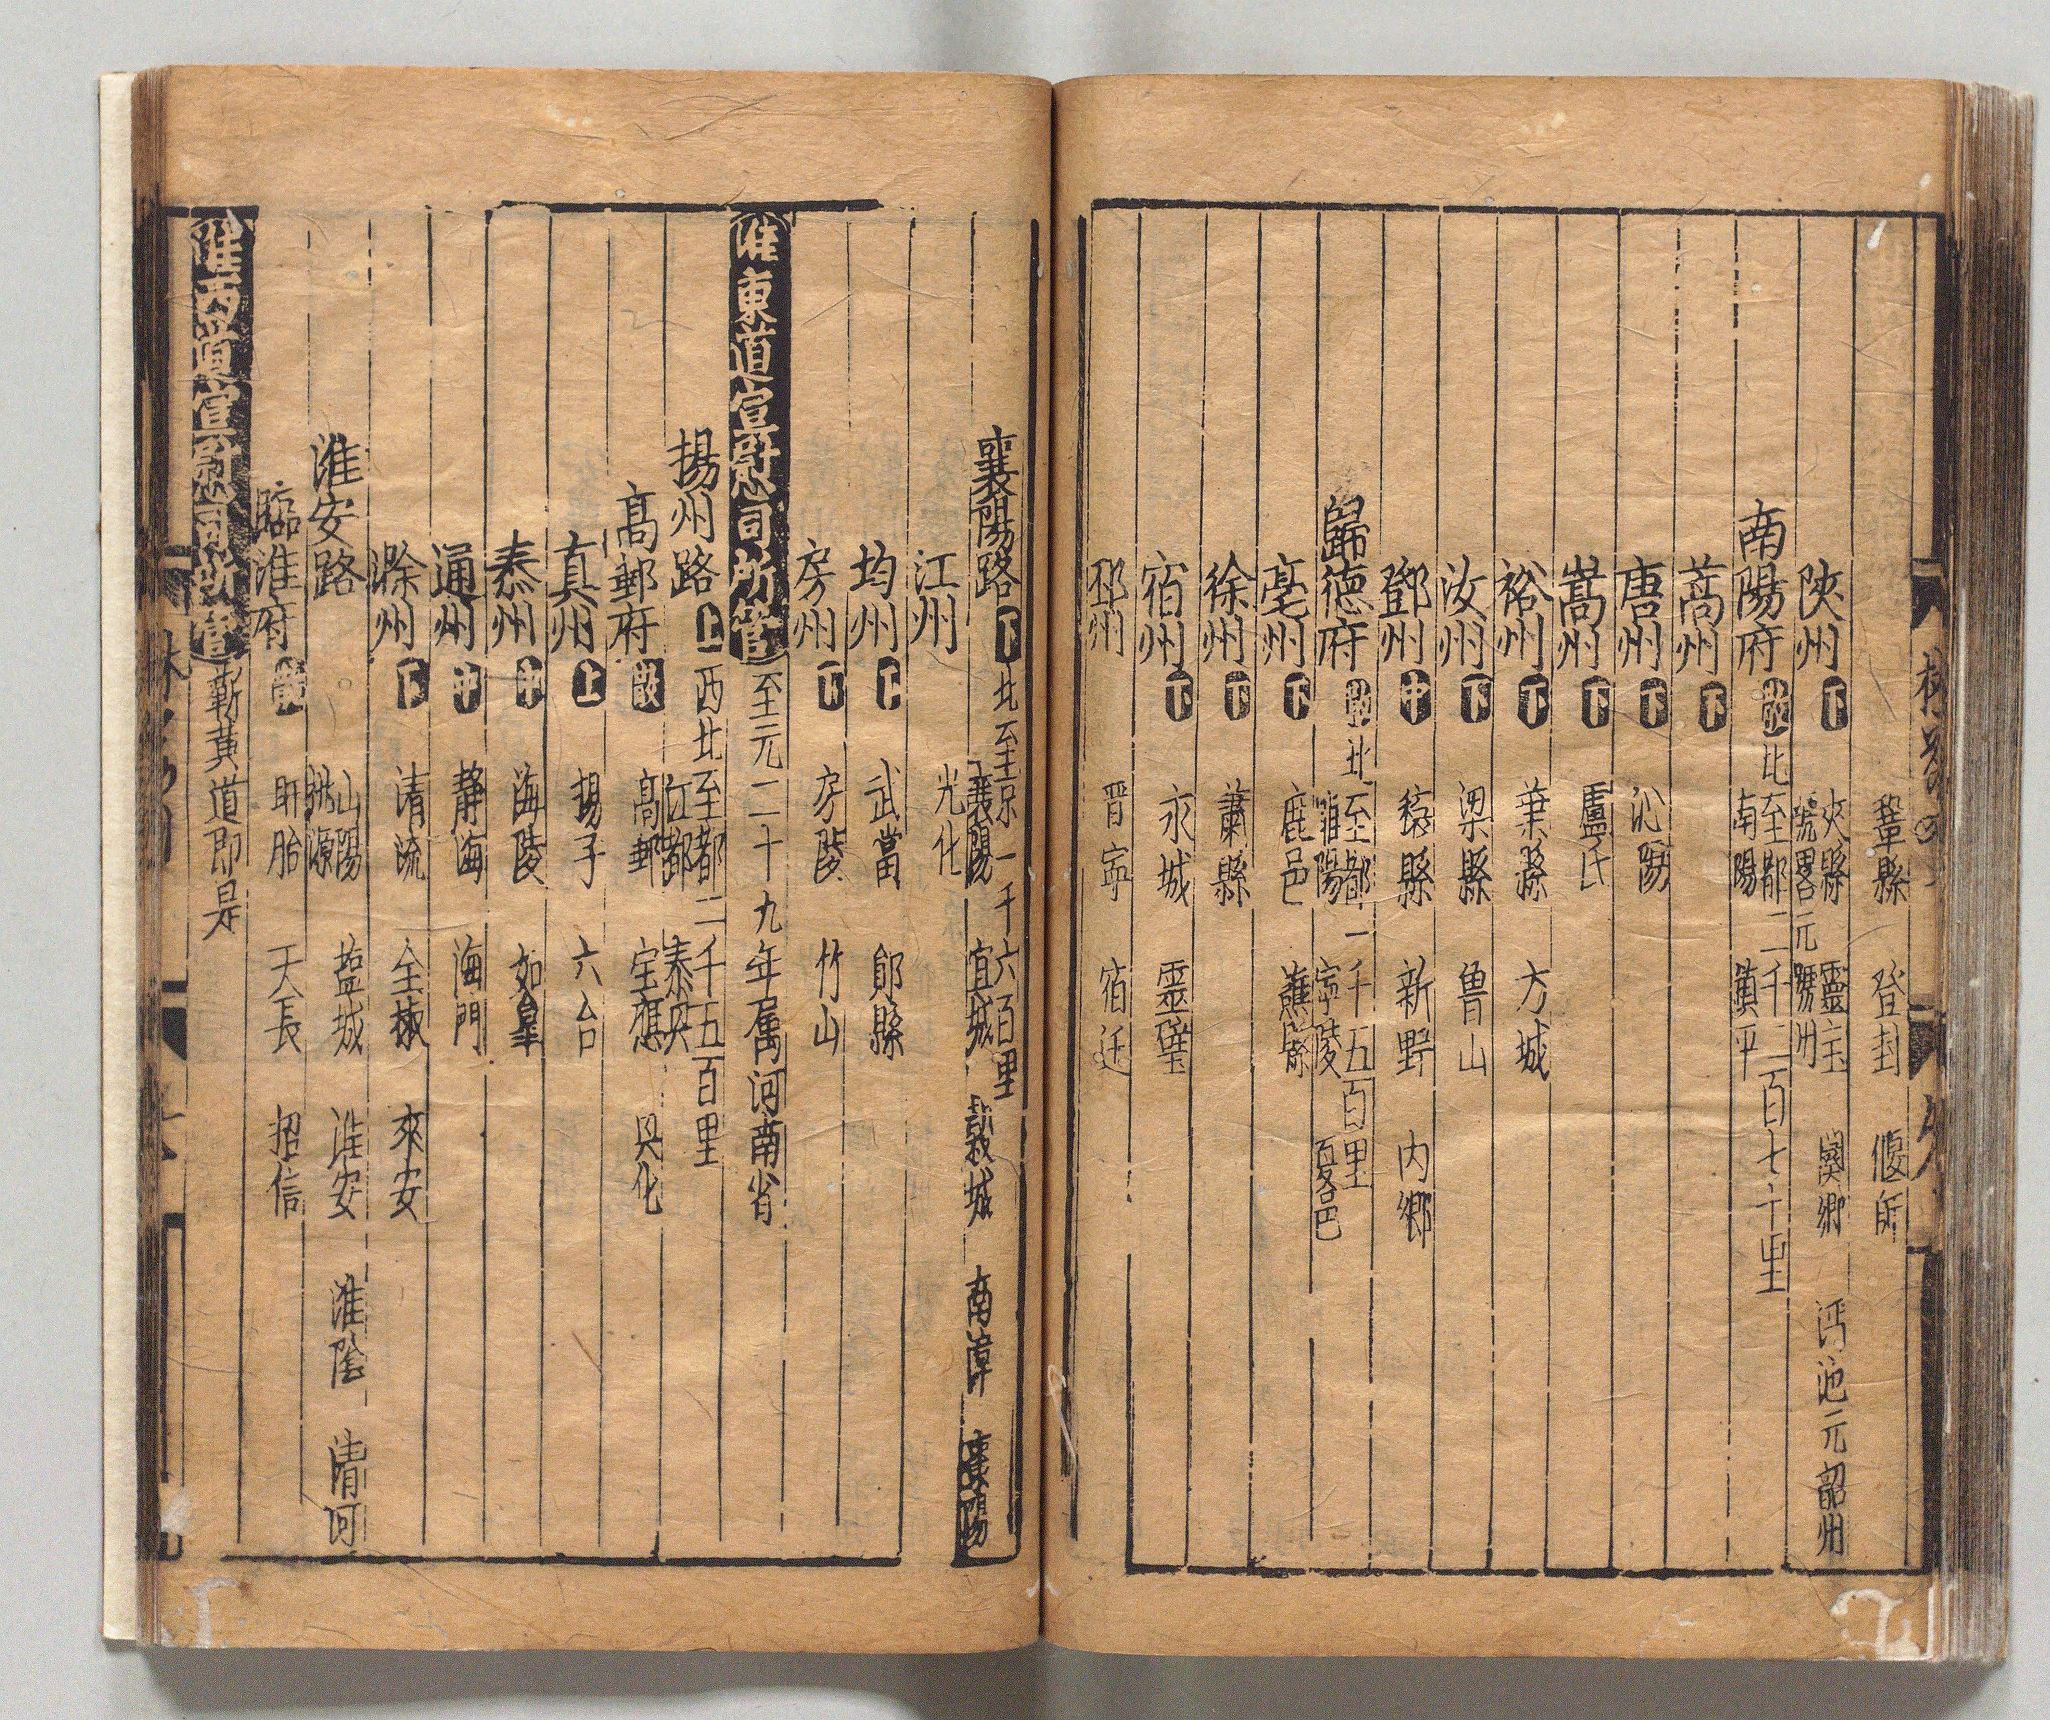 鞏縣 登封 偃師
陜州 下 陜縣 靈宝 閿鄉 沔池元韶州 虢畧元虢州
南陽府 散 北至都二千二百七十里 南陽 鎮平
蒿州 下
唐州 下 沁陽
嵩州 下 盧氏
裕州 下 葉縣 方城
汝州 下 梁縣 魯山
鄧州 中 穰縣 新野 内鄉
歸德府 散 北至都一千五百里 睢陽 寧陵 夏邑
亳州 下 鹿邑 譙縣
徐州 下 蕭縣
宿州 下 永城 靈璧
邳州 晋寧 宿迁
襄陽路 下 北至京一千六百里 襄陽 宜城 穀城 南漳 棗陽
江州 光化
均州 下 武當 鄖縣
房州 下 房陵 竹山
淮東道宣慰司所管 至元二十九年属河南省
揚州路 上 西北至都二千五百里 江都 泰兴
高郵府 散 高郵 宝應 兴化
真州 上 揚子 六合
泰州 中 海陵 如皋
通州 中 静海 海門
滁州 下 清流 全椒 來安
淮安路 山陽 塩城 淮安 淮陰 清河 桃源
臨淮府 散 盱眙 天長 招信
淮西道宣慰司所管 蘄黄道即是